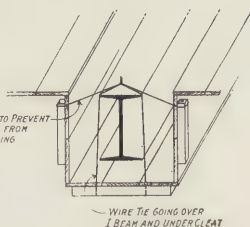 TO PREVENT
FROM
ING
WIRE TIE GOING OVER
I BEAM AND UNDER CLEAT